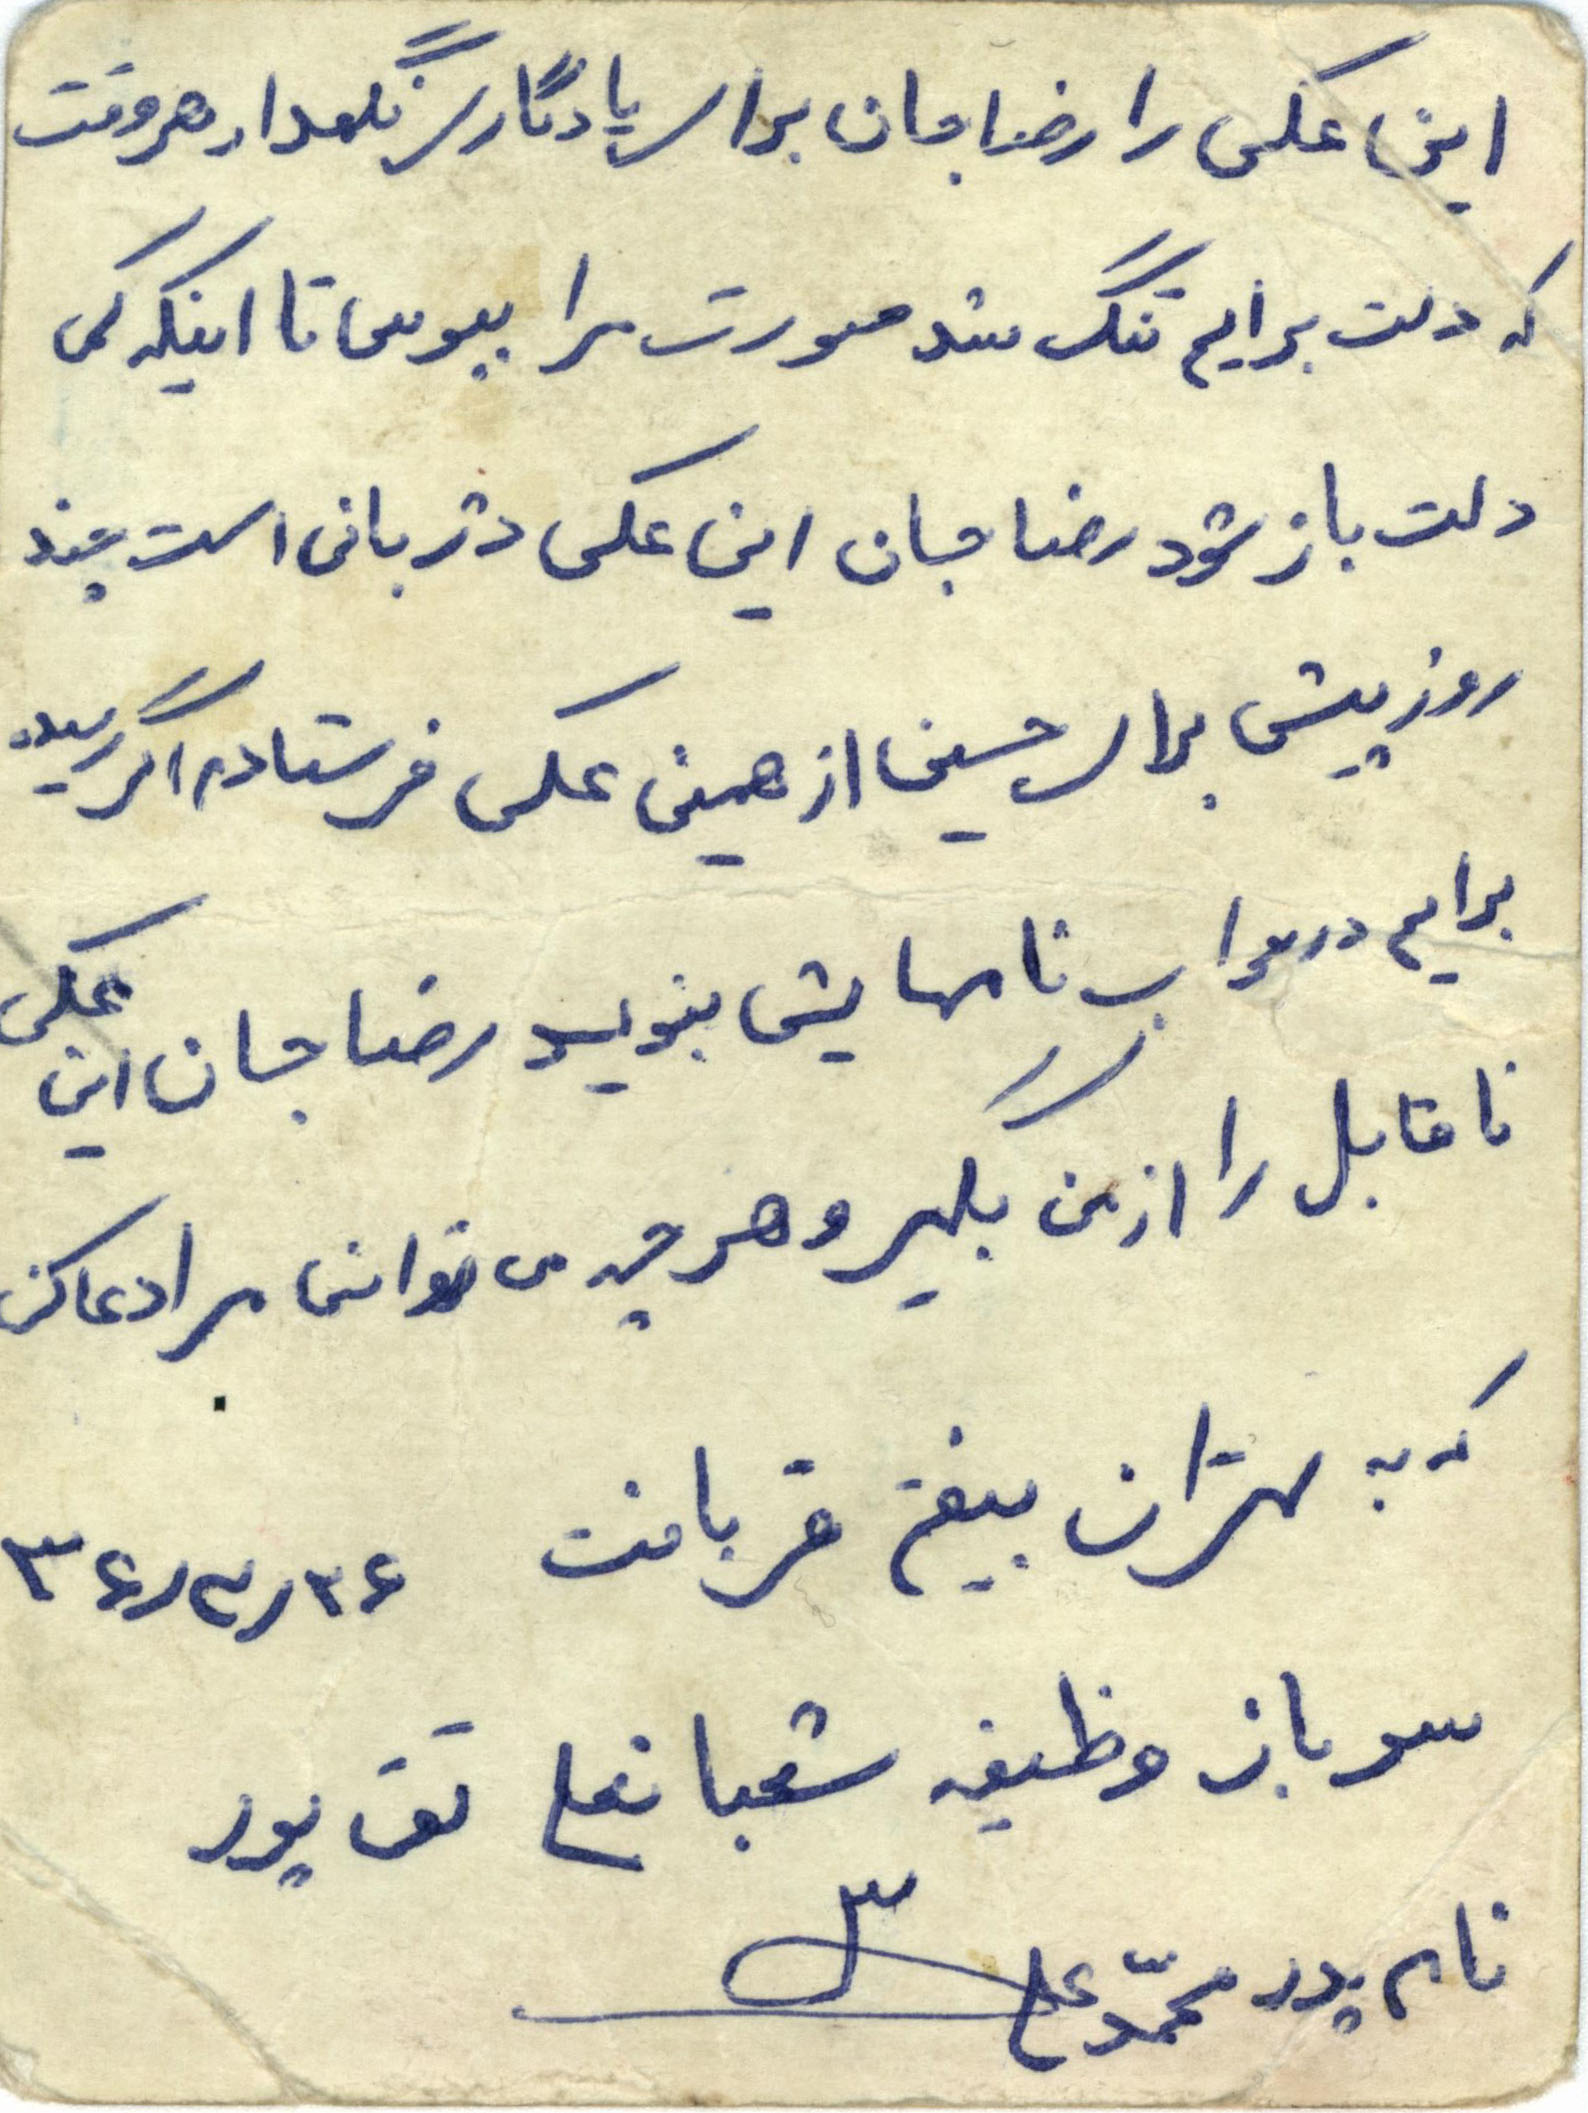 این عکس را رضا جان برای یادگاری نگهدار هر وقت
که دلت برایم تنگ شد صورت مرا ببوس تا اینکه کمی
دلت باز شود رضا جان این عکس دژبانی است چند
روز پیش برای حسین از همین عکس فرستادم اگر رسیده
برایم در جواب نامهایش بنویسد رضا جان این عکس
ناقابل را از من بگیر و هر چه می توانی مرا دعا کن
که به تهران بیفتم قربانت ۳۶/۲/۲۶
سرباز وظیفه شعبانعلی تقی پور
نام پدر محمّد علی